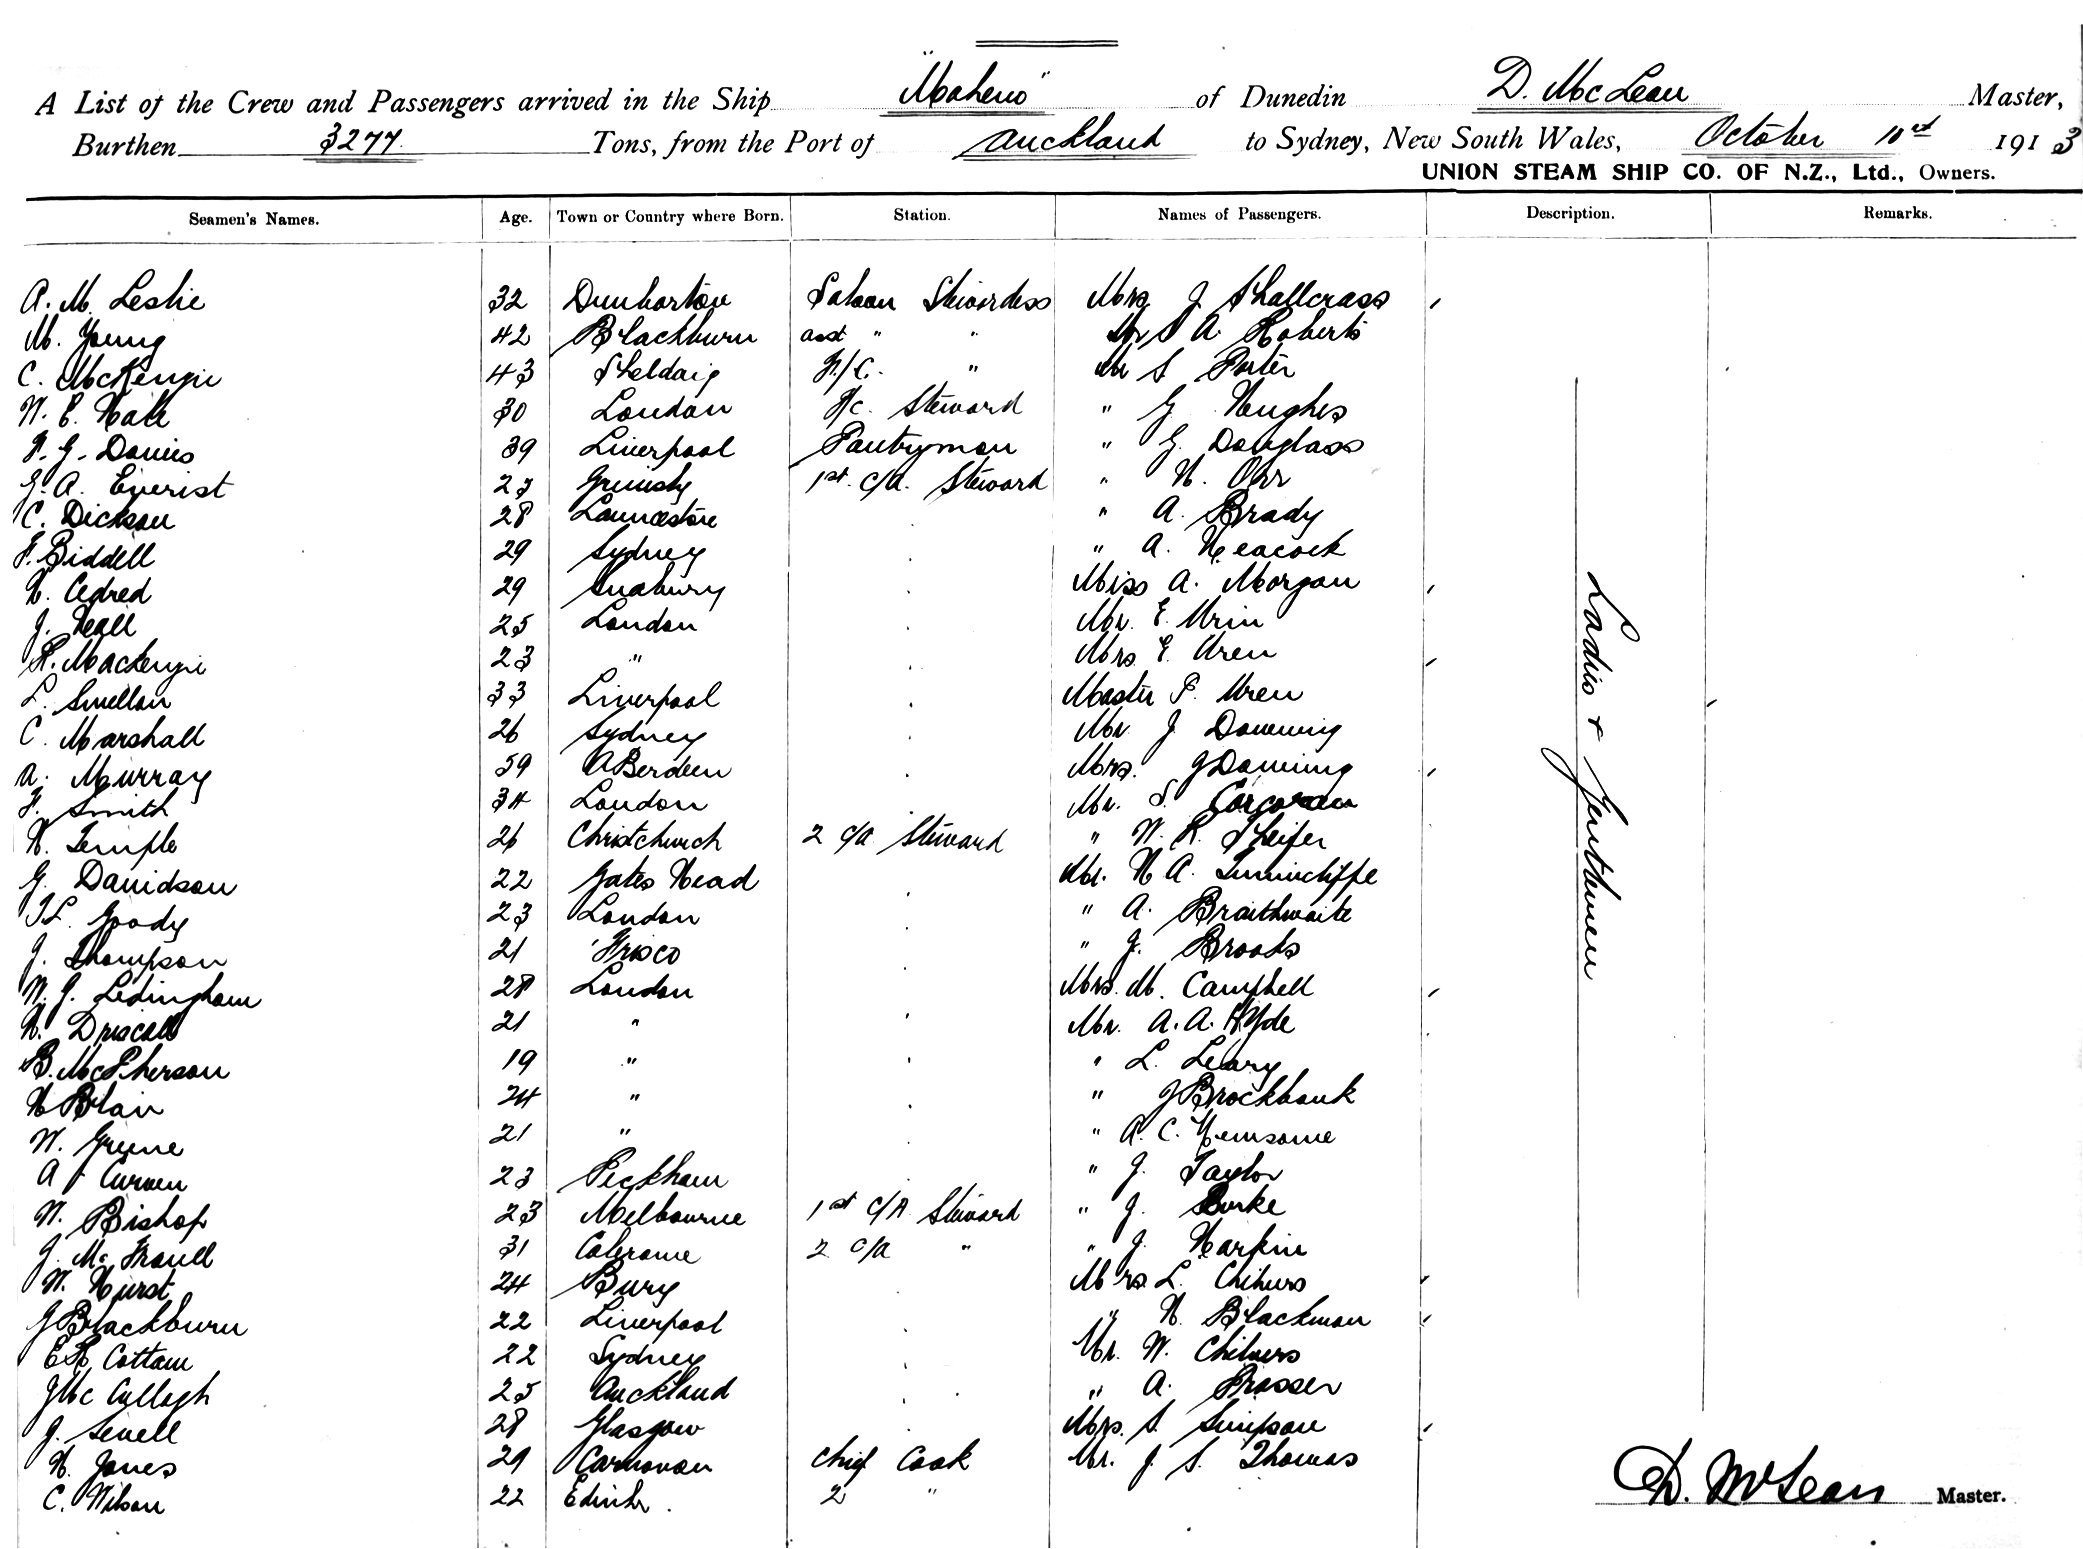 A List of the Crew and Passengers arrived in the Ship "Maheno" of Dunedin D. McLean Master,
Burthen 3277 Tons, from the Port of Auckland to Sydney, New South Wales, October 1913
UNION STEAM SHIP CO. OF N.Z., Ltd., Owners.
Seamen's Names. Age. Town or Country where Born. Station. Names of Passengers. Description. Remarks.
A. M. Leslie 32 Dunbarton Saloon Stewardess Mrs J Shallcrass
M. Young 42 Blackburn asst " " A. Roberts
C. McKenzie 43 Sheldaig F/C. " Mr S Porter
30 London F/c. Steward " G Hughes
F. G. Davies 39 Liverpool Pantryman " G. Douglass
G. A. Everist 23 Grimsby 1st c/a. Steward " H. Orr
C. Dickson 28 Launceston " A. Brady
F. Biddell 29 Sydney " A. Heacock
29 Sudbury Miss A. Morgan
J. Hall 25 London Mr. E. Uren
R. Mackenzie 23 " Mrs E. Uren
L. Smellan 33 Liverpool Master P. Uren
C. Marshall 26 Sydney Mr J Downing
A. Murray 59 ABerdeen Mrs. J Downing
F. Smith 34 London Mr. S. Corcoran
H. Temple 26 Christchurch 2 c/a Steward " W. R.
G. Davidson 22 Gates Head Mr. H A. Tunnicliffe
Goody 23 London " A. Braithwaite
J. Thompson 21 'Frisco " J. Brooks
W. J. Ledingham 28 London Mrs. M. Campbell
H. Driscoll 21 " Mr. A. A. Hyde
B. McPherson 19 " " L. Leary
H Blair 24 " " J Brockbank
W. Greene 21 " " A. C. Hemsome
A J Curwen 23 Peckham " J. Taylor
W. Bishop 23 Melbourne 1st C/A Steward " J. Burke
J. 31 Colerane 2 c/a " " J. Harkin
W. Hurst 24 Bury Mrs L. Chilvers
J Blackburn 22 Liverpool " H. Blackman
E R Cottam 22 Sydney Mr. W. Chilvers
J Mc Cullogh 25 Auckland " A. Prosser
J. Sewell 28 Glasgow Mrs. S. Simpson
H. Jones 29 Carnovan Chief Cook Mr. J. S. Thomas
C. Wilson 22 Edinbr. 2 "
Ladies & Gentlemen
D. McLean Master.